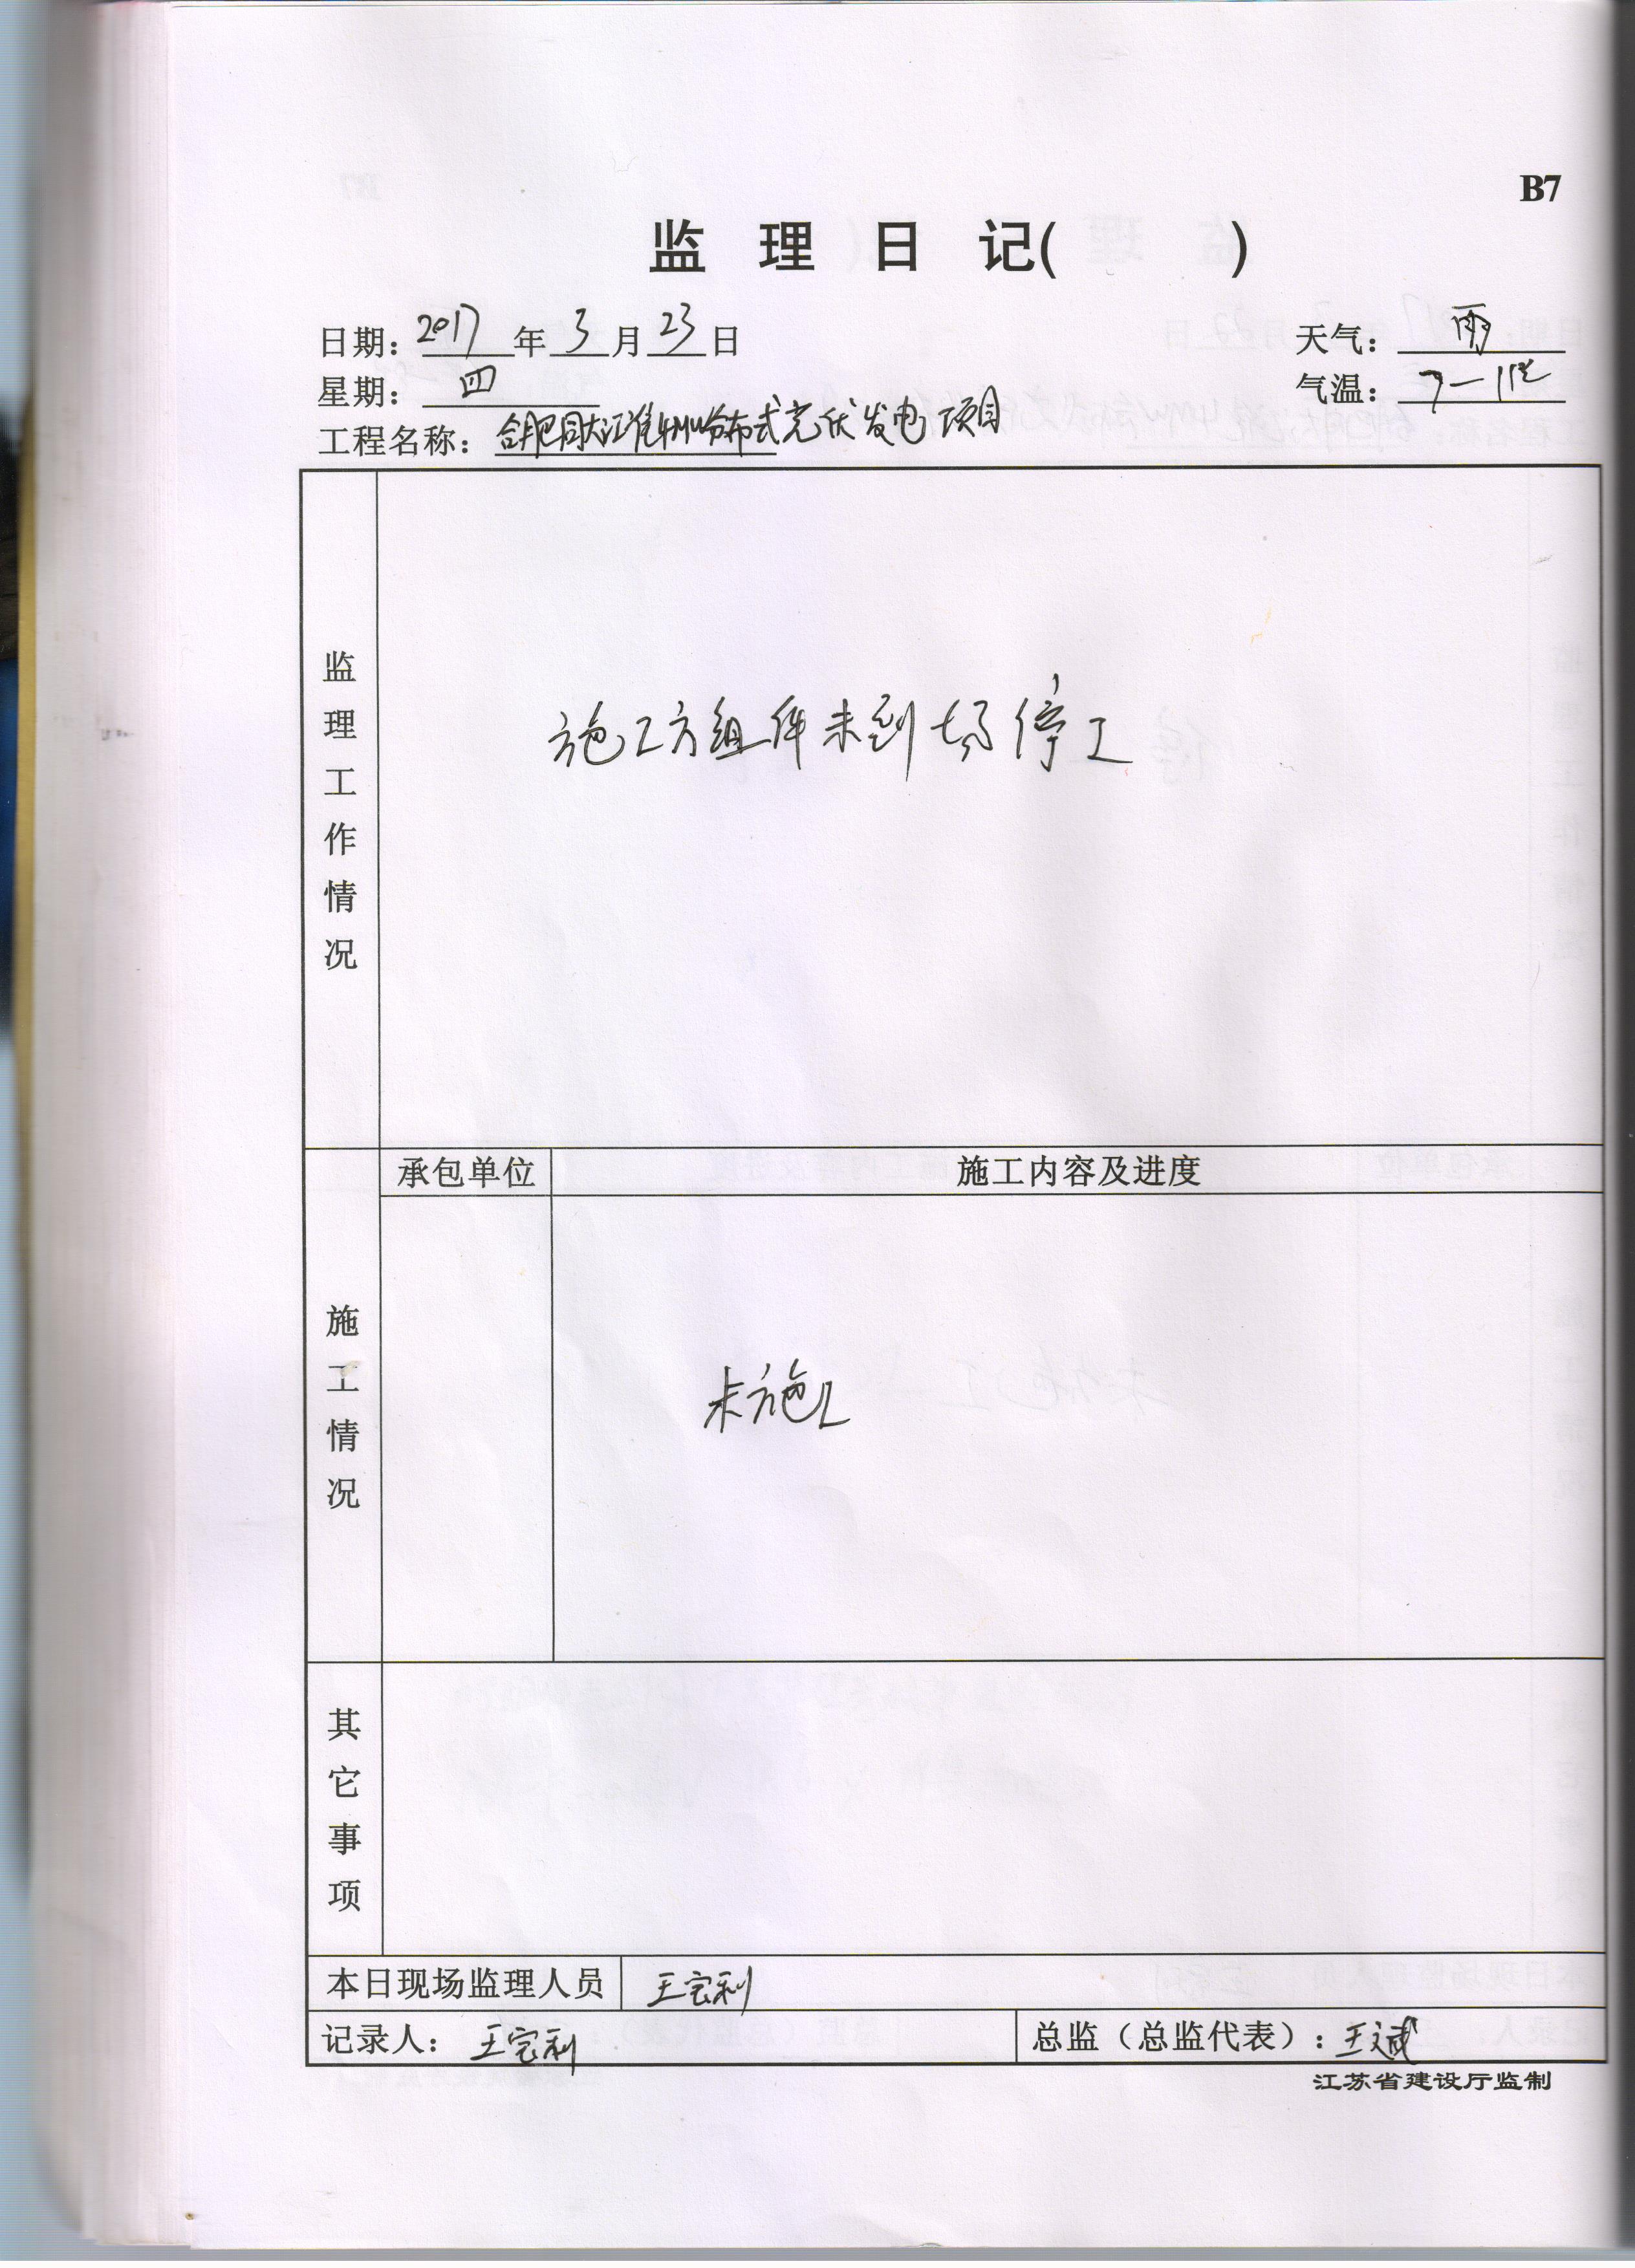 B7
监 理 日 记( )
日期: 2017 年 3 月 23 日 天气: 雨
星期: 四 气温: 7—11℃
工程名称: 合肥同大江淮4MW分布式光伏发电项目
监理工作情况
施工方组件未到场停工
承包单位 施工内容及进度
施工情况
未施工
其它事项
本日现场监理人员 王宝利
记录人: 王宝利 总监(总监代表): 王斌
江苏省建设厅监制